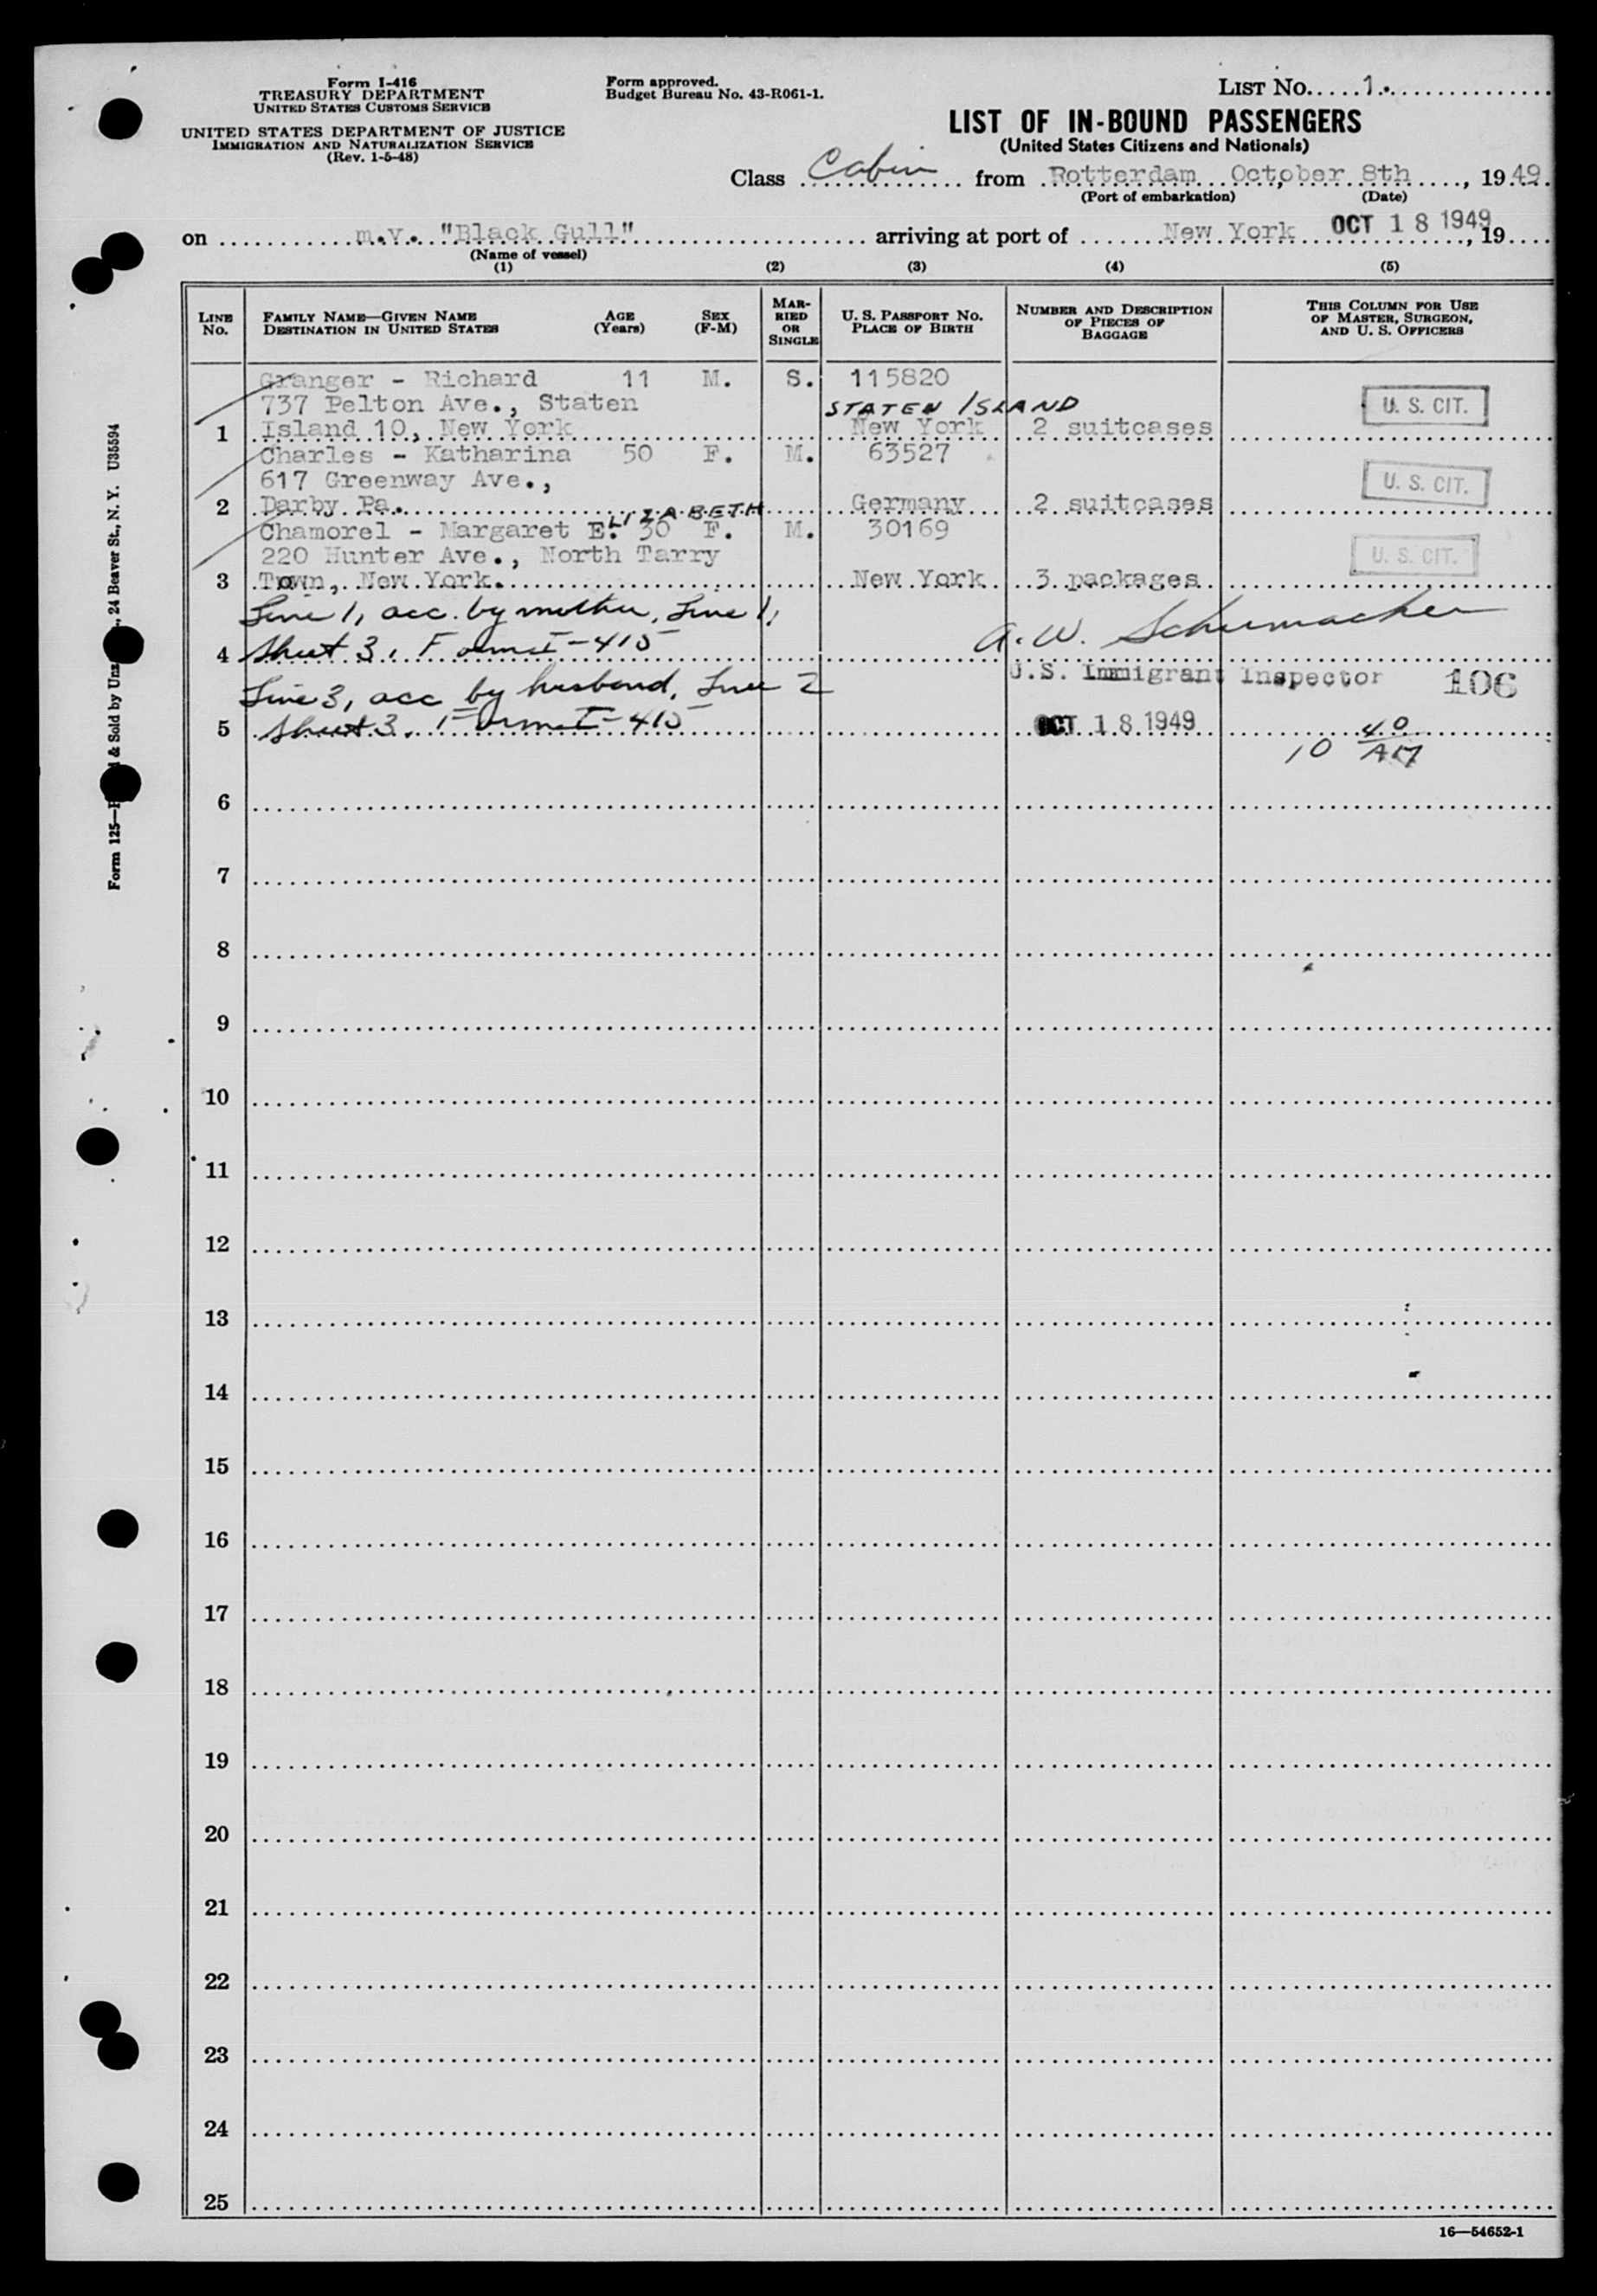 Form I-416
TREASURY DEPARTMENT
UNITED STATES CUSTOMS SERVICE
UNITED STATES DEPARTMENT OF JUSTICE
IMMIGRATION AND NATURALIZATION SERVICE
(Rev. 1-5-48)
Form approved.
Budget Bureau No. 43-R061-1.
LIST NO. 1.
LIST OF IN-BOUND PASSENGERS
(United States Citizens and Nationals)
Class Cabin from Rotterdam October 8th, 1949.
(Port of embarkation) (Date)
on m.v. "Black Gull" arriving at port of New York OCT 18 1949, 19
(Name of vessel)
(1) (2) (3) (4) (5)
LINE NO.
FAMILY NAME—GIVEN NAME
DESTINATION IN UNITED STATES
AGE (Years)
SEX (F-M)
MARRIED OR SINGLE
U. S. PASSPORT NO.
PLACE OF BIRTH
NUMBER AND DESCRIPTION OF PIECES OF BAGGAGE
THIS COLUMN FOR USE OF MASTER, SURGEON, AND U. S. OFFICERS
Granger - Richard 11 M. S. 115820
737 Pelton Ave., Staten STATEN ISLAND U. S. CIT.
1 Island 10, New York New York 2 suitcases
Charles - Katharina 50 F. M. 63527
617 Greenway Ave., U. S. CIT.
2 Darby Pa. Germany 2 suitcases
LIZABETH
Chamorel - Margaret E. 30 F. M. 30169
220 Hunter Ave., North Tarry U. S. CIT.
3 Town, New York. New York 3 packages
Line 1, acc. by mother, Line 1,
4 Sheet 3, Form I-415 A. W. Schumacher
U.S. Immigrant Inspector 106
Line 3, acc by husband, Line 2
5 Sheet 3, Form I-415 OCT 18 1949
10 40 AM
6
7
8
9
10
11
12
13
14
15
16
17
18
19
20
21
22
23
24
25
16—54652-1
, 24 Beaver St., N. Y. U35594
& Sold by Unz
Form 125—